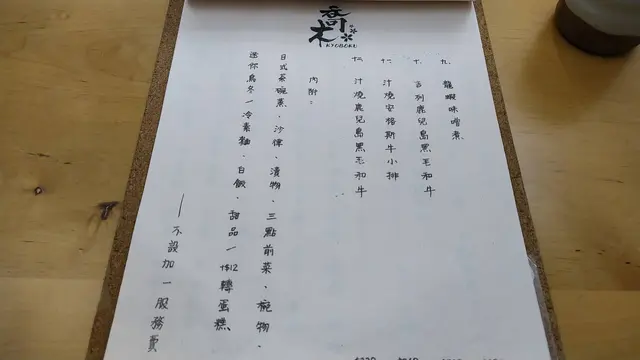 喬木
KYOBOKU
九、龍蝦味噌煮
十、吉列鹿兒島黑毛和牛
十一、汁燒安格斯牛小排
十二、汁燒鹿兒島黑毛和牛
內附：
日式茶碗蒸、沙律、漬物、三點前菜、椀物、
迷你烏冬/冷素麵、白飯、甜品/+$12轉蛋糕
——不設加一服務費